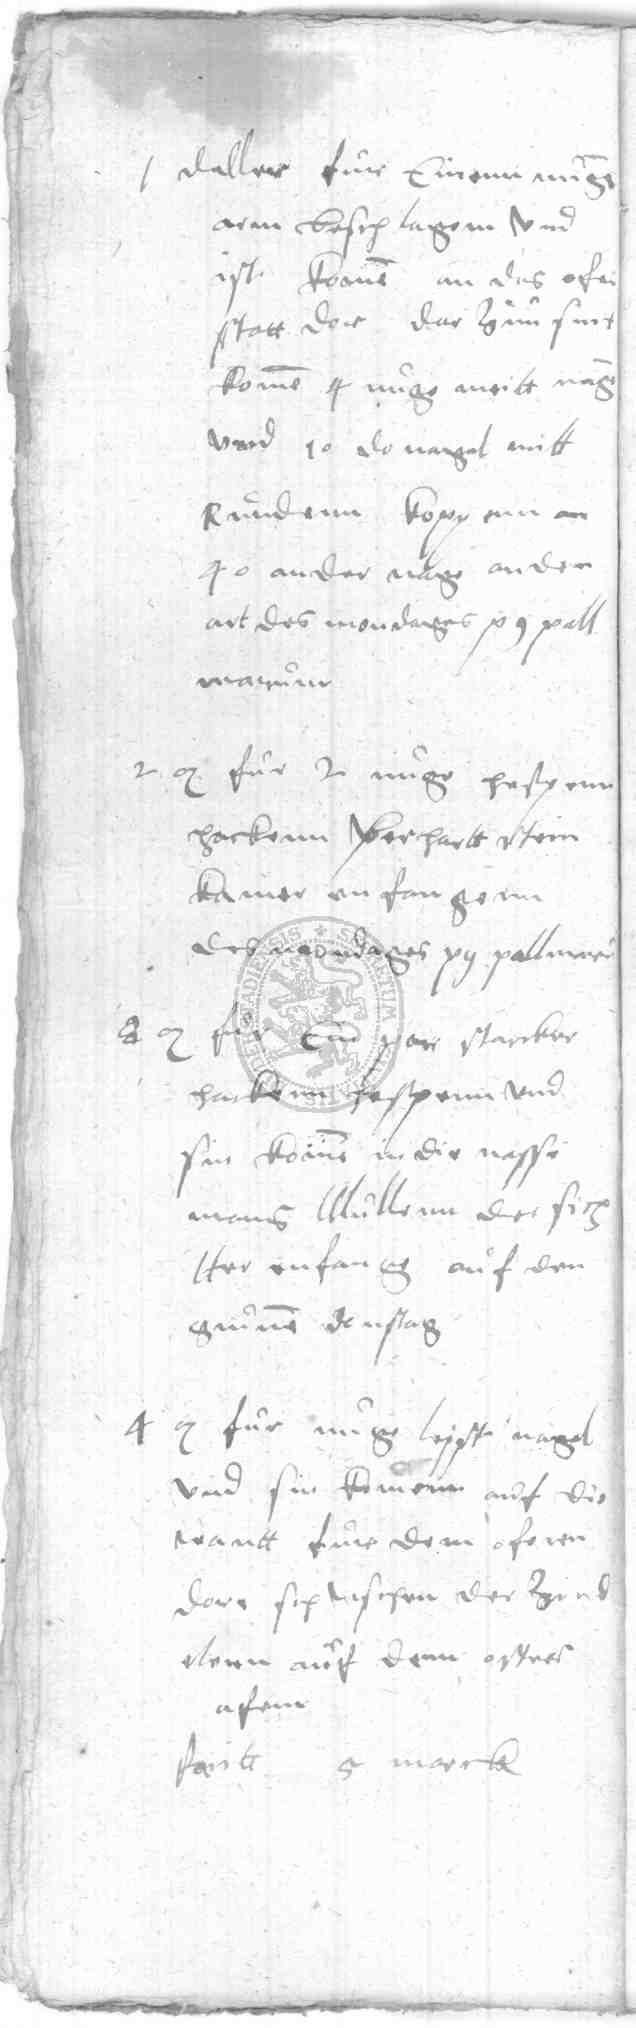 1 daller fur Einenn nuge
arm beschlagenn Vnd
ist komē an das ofer
statt dor dar zu sint
komē 4 nuge meitt nage
Vnd 10 do nagel mitt
Rundenn koppenn
40 ander nage an der
art des mondages pall
marum
2 fur 2 nuge hespenn
hackenn stein
kamer enfangenn
des mondages pallmar
8 fur Ein par starcker
hackenn hespenn Vnd
sin komē in die nasse
mans Mullenn der sich
tter enfang auf den
gronē donstag
4 fur nuge leyste nagel
Vnd sin komenn auf die
wantt fur dem oferen
dore schwischen der
elenn auf denn oster
afent
facitt 5 marck